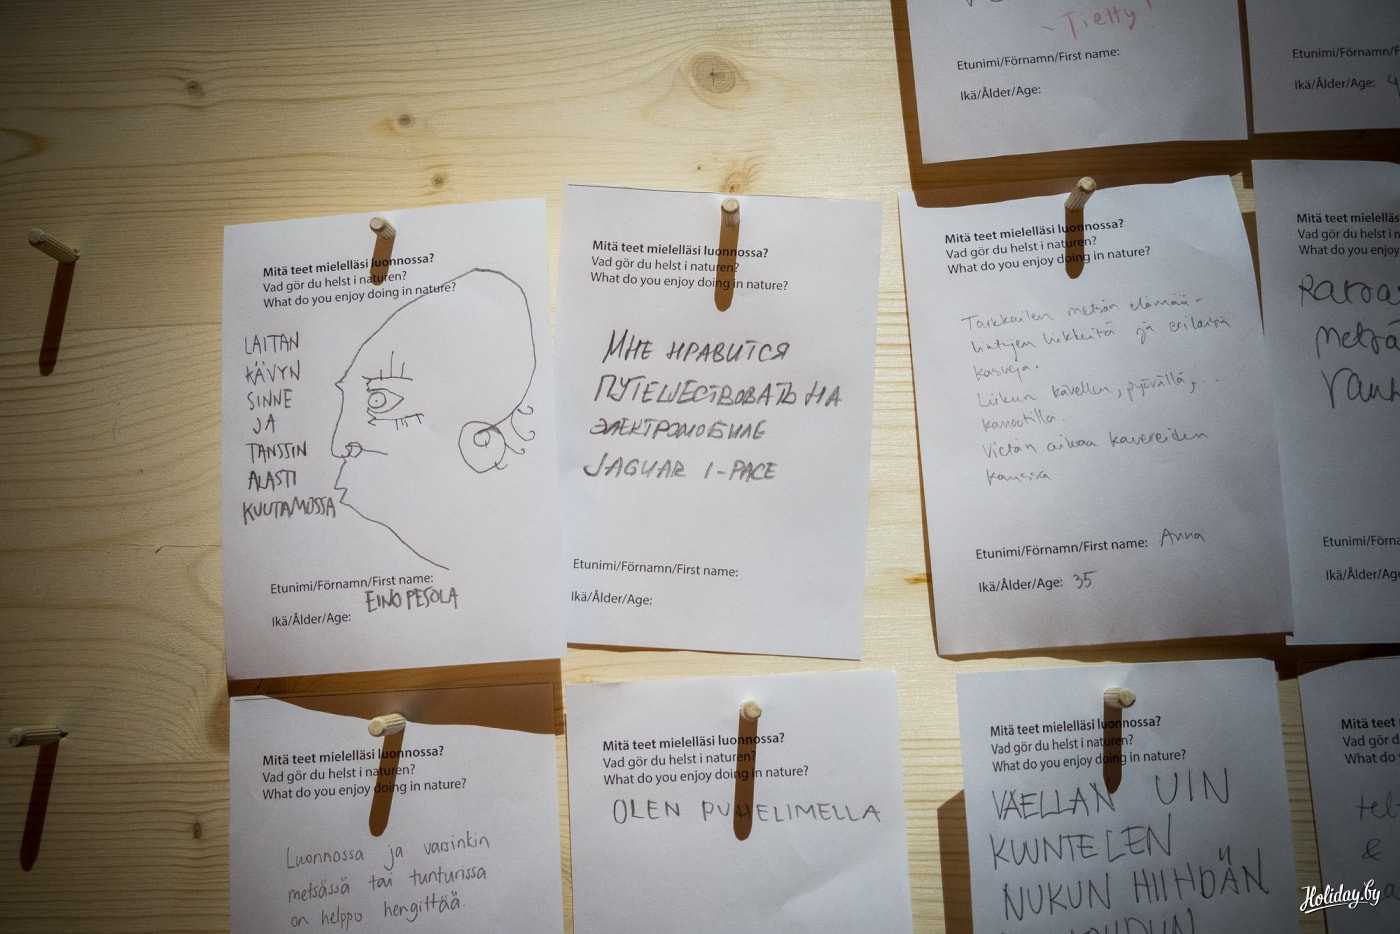 - Tietty!
Etunimi/Förnamn/First name:
Ikä/Ålder/Age:
Etunimi/Förnamn/F
Ikä/Ålder/Age:
Mitä teet mielelläsi luonnossa?
Vad gör du helst i naturen?
What do you enjoy doing in nature?
LAITAN
KÄVYN
SINNE
JA
TANSSIN
ALASTI
KUUTAMOSSA
Etunimi/Förnamn/First name:
EINO PESOLA
Ikä/Ålder/Age:
Mitä teet mielelläsi luonnossa?
Vad gör du helst i naturen?
What do you enjoy doing in nature?
МНЕ НРАВИТСЯ
ПУТЕШЕСТВОВАТЬ НА
ЭЛЕКТРОМОБИЛЕ
JAGUAR I-PACE
Etunimi/Förnamn/First name:
Ikä/Ålder/Age:
Mitä teet mielelläsi luonnossa?
Vad gör du helst i naturen?
What do you enjoy doing in nature?
Tarkkailen metsän elämää -
lintujen liikkeitä ja erilaisia
kasveja.
Liikun kävellen, pyörällä,
kanootilla.
Vietän aikaa kavereiden
kanssa
Etunimi/Förnamn/First name: Anna
Ikä/Ålder/Age: 35
Mitä teet mielelläs
Vad gör du helst i n
What do you enjoy
metsä
Etunimi/Förna
Ikä/Ålder/Age
Mitä teet mielelläsi luonnossa?
Vad gör du helst i naturen?
What do you enjoy doing in nature?
Luonnossa ja varsinkin
metsässä tai tunturissa
on helppo hengittää.
Mitä teet mielelläsi luonnossa?
Vad gör du helst i naturen?
What do you enjoy doing in nature?
OLEN PUHELIMELLA
Mitä teet mielelläsi luonnossa?
Vad gör du helst i naturen?
What do you enjoy doing in nature?
VAELLAN UIN
KUUNTELEN
NUKUN HIIHDÄN
Mitä teet
Vad gör d
What do
tel
&
Holiday.by